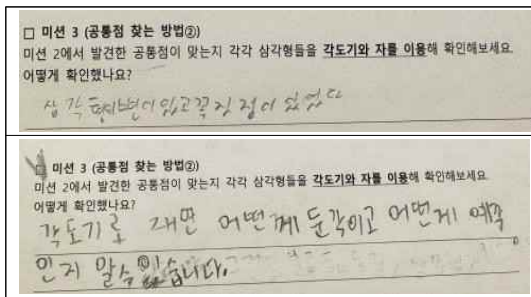 □ 미션 3 (공통점 찾는 방법②)
미션 2에서 발견한 공통점이 맞는지 각각 삼각형들을 각도기와 자를 이용해 확인해보세요.
어떻게 확인했나요?
삼각 변이 있고 꼭짓점이 있었다
□ 미션 3 (공통점 찾는 방법②)
미션 2에서 발견한 공통점이 맞는지 각각 삼각형들을 각도기와 자를 이용해 확인해보세요.
어떻게 확인했나요?
각도기로 재면 어떤게 둔각이고 어떤게 예각
인지 알수 있습니다.